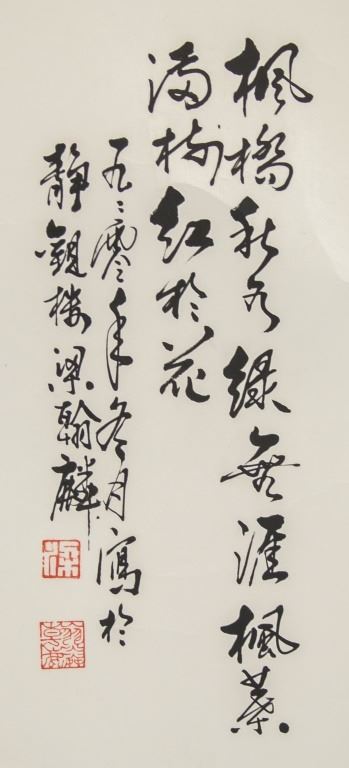 楓橋秋水綠無涯楓葉
滿樹紅於花
一九〻零年冬月寫於
靜觀樓梁翰麟
梁